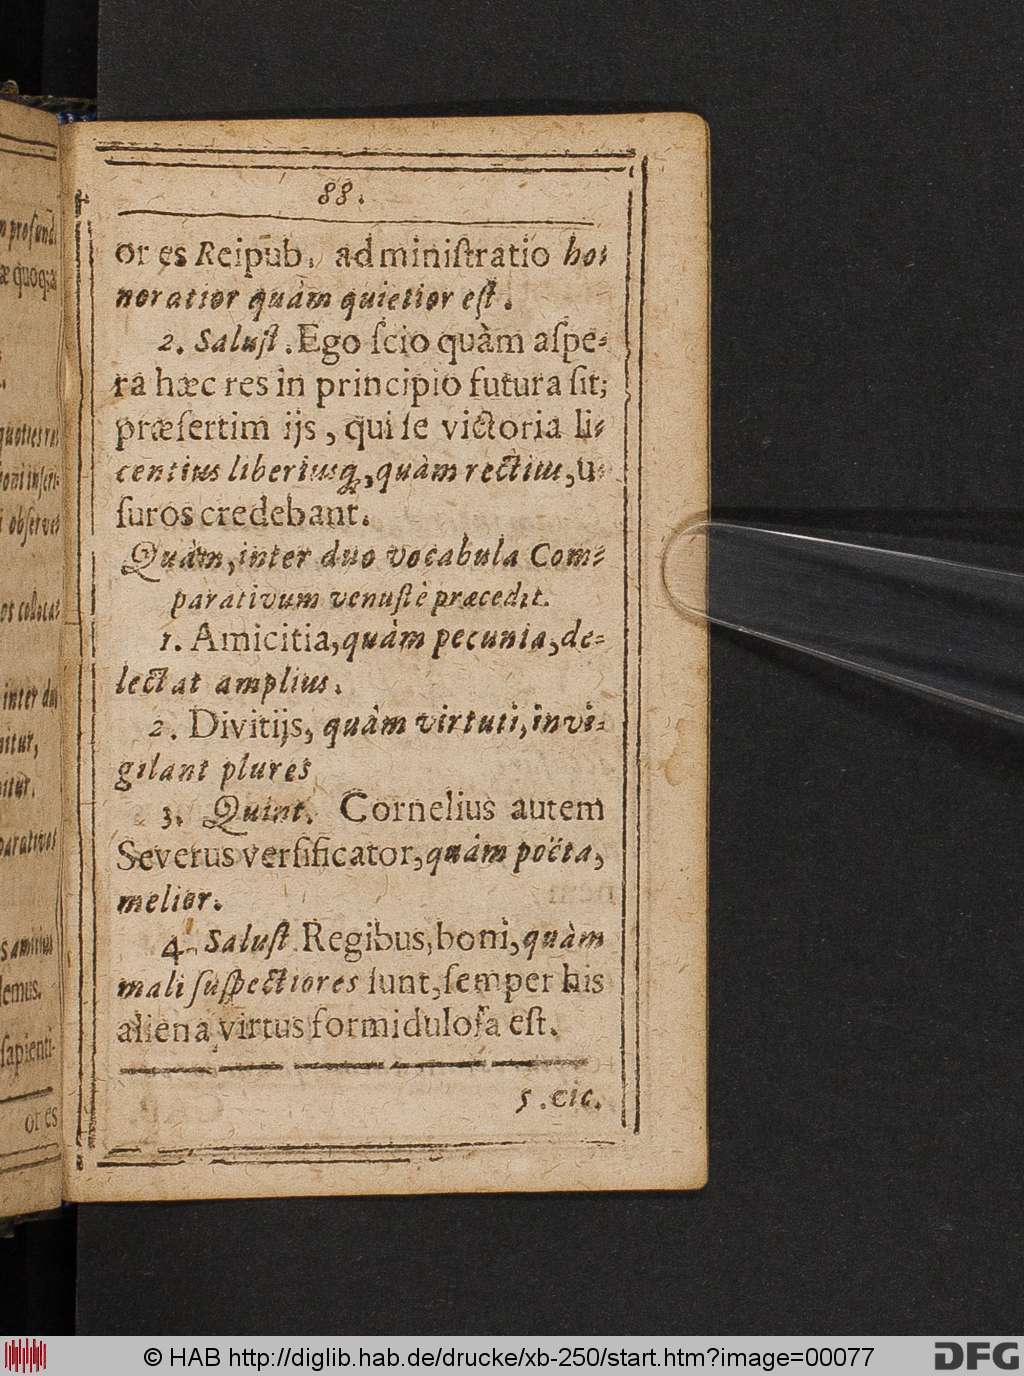 88.
or es Reipub. administratio ho-
noratior quàm quietior eſt.
2. Saluſt. Ego ſcio quàm aſpe-
ra hæc res in principio futura ſit;
præſertim ijs, qui ſe victoria li-
centius liberiusq;, quàm rectius, u-
ſuros credebant.
Quàm, inter duo vocabula Com-
parativum venuſtè præcedit.
1. Amicitia, quàm pecunia, de-
lectat amplius.
2. Divitijs, quàm virtuti, invi-
gilant plures
3. Quint. Cornelius autem
Severus verſificator, quàm poëta,
melior.
4. Saluſt. Regibus, boni, quàm
mali ſuſpectiores ſunt, ſemper his
aliena virtus formiduloſa eſt.
5. Cic.
quoq;
quoties
obſerves
collocat
inter
itur,
amicius
ſapienti-
or es
© HAB http://diglib.hab.de/drucke/xb-250/start.htm?image=00077
DFG